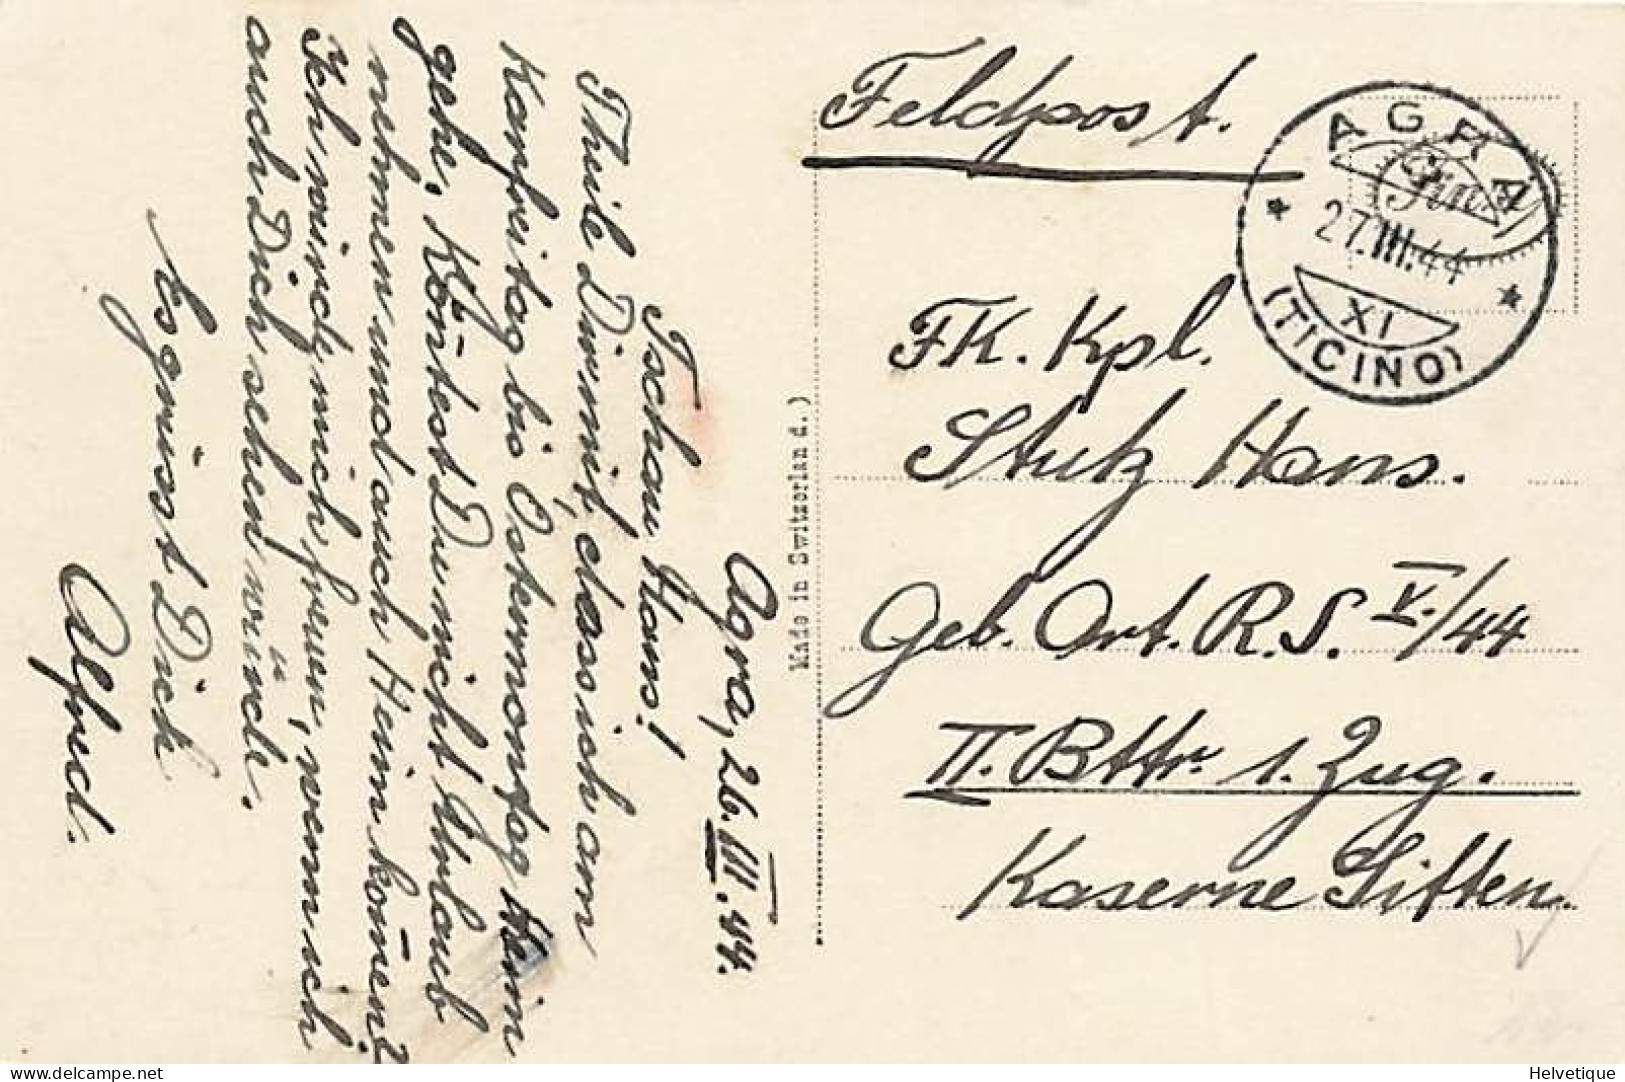 Agra, 26.III.44.
Tschau Hans!
Theile Dir mit, dass ich am
Karfreitag bis Ostermontag Heim
gehe, Köntest Du nicht Urlaub
nehmen und auch Heim kom̄en?
Ich würde mich freuen, wenn ich
auch Dich sehen würde.
Es grüsst Dich
Alfred.
Made in Switzerland.)
Feldpost.
AGRA
27.III.44
XI
(TICINO)
FK. Kpl.
Stutz Hans.
Geb. Art. R.S. V./44
II. Bttr. 1. Zug.
Kaserne Sitten.
delcampe.net
Helvetique